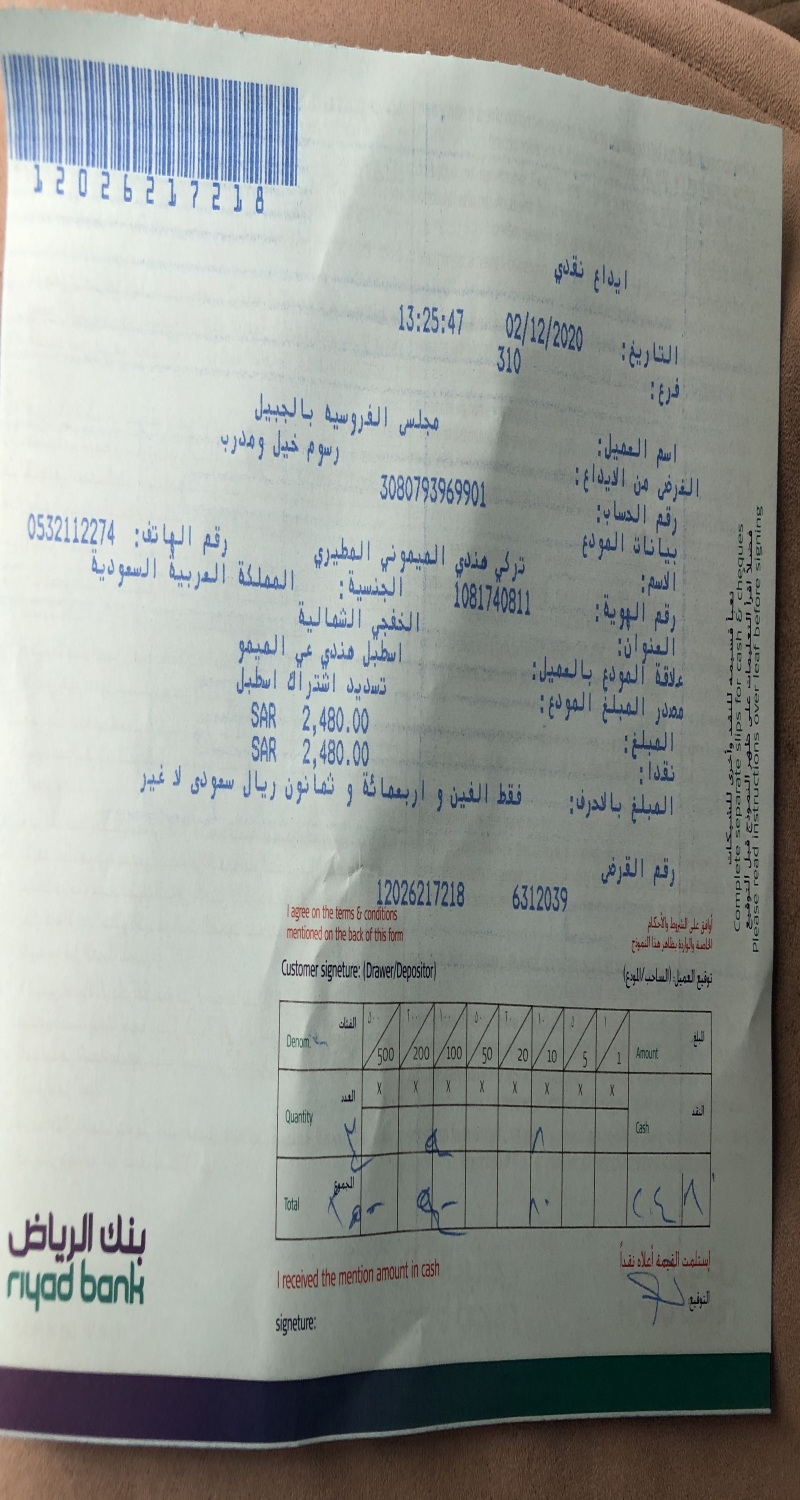 12026217218
ايداع نقدي
التاريخ: 02/12/2020 13:25:47
فرع: 310
اسم العميل: مجلس الفروسيه بالجبيل
الغرض من الايداع: رسوم خيل ومدرب
رقم الحساب: 3080793969901
بيانات المودع
الاسم: تركي هندي الميموني المطيري رقم الهاتف: 0532112274
رقم الهوية: 1081740811 الجنسية: المملكة العربية السعودية
العنوان: الخفجي الشمالية
علاقة المودع بالعميل: اسطبل هندي عي الميمو
مصدر المبلغ المودع: تسديد اشتراك اسطبل
المبلغ: SAR 2,480.00
نقدا: SAR 2,480.00
المبلغ بالاحرف: فقط الفين و اربعمائة و ثمانون ريال سعودى لا غير
رقم القرض
6312039 12026217218
أوافق على الشروط والأحكام
الخاصة والواردة بظاهر هذا النموذج
I agree on the terms & conditions
mentioned on the back of this form
توقيع العميل: (الساحب/المودع)
Customer signeture: (Drawer/Depositor)
Denom. الفئات ٥٠٠ 500 ٢٠٠ 200 ١٠٠ 100 ٥٠ 50 ٢٠ 20 ١٠ 10 ٥ 5 ١ 1 Amount المبلغ
Quantity العدد X X X X X X X X Cash النقد
٨
Total المجموع ٨٠
إستلمت القيمة أعلاه نقداً
I received the mention amount in cash
التوقيع:
signeture:
بنك الرياض
riyad bank
تعبأ قسيمه للنقد وأخرى للشيكات
Complete separate slips for cash & cheques
فضلاً اقرأ التعليمات على ظهر النموذج قبل التوقيع
Please read instructions over leaf before signing